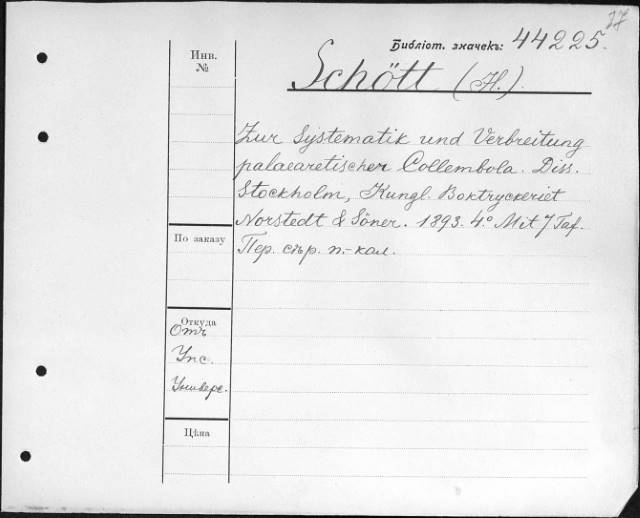 Библіот. значекъ: 44225.
Инв.
№
Schött (H.).
Zur Systematik und Verbreitung
palaearctischer Collembola. Diss.
Stockholm, Kungl. Boktryckeriet
Norstedt & Söner. 1893. 4° Mit 7 Taf.
По заказу
Пер. сѣр. п.-кал.
Откуда
Отъ
Упс.
Универс.
Цѣна